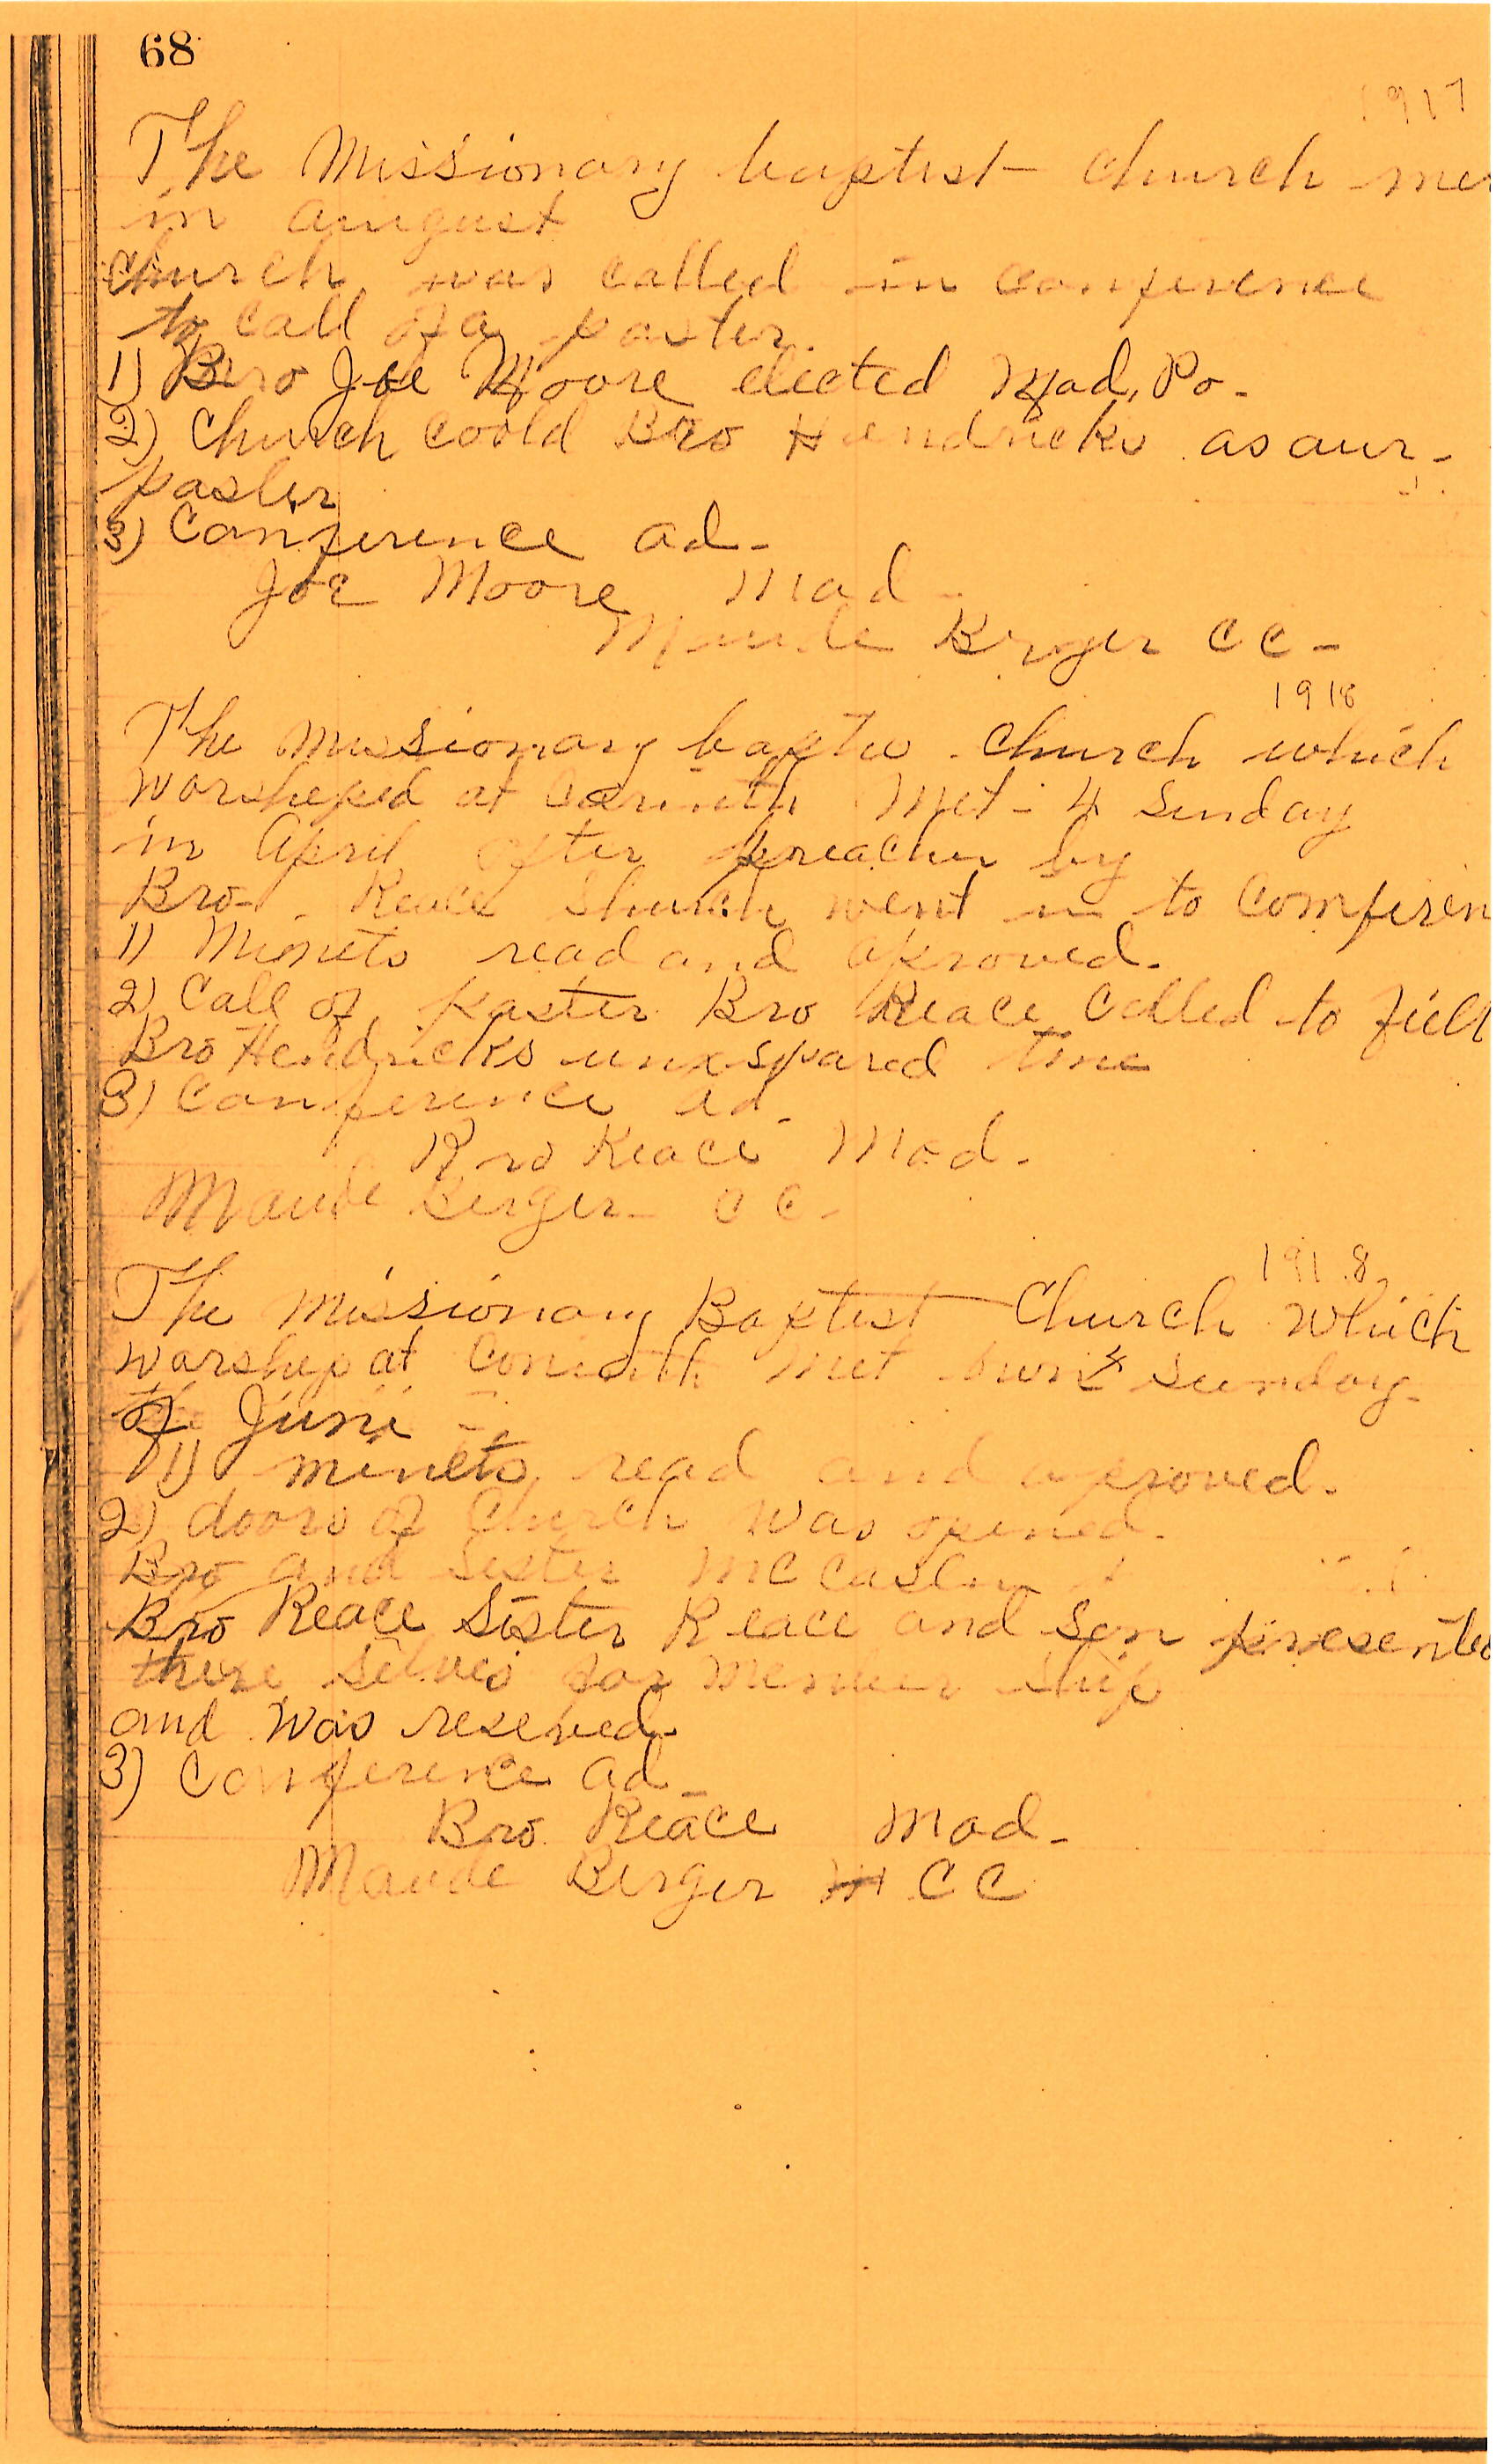 68
1917
The Missionary baptist church met
in august
church was called in conference
to call of a paster.
1) Bro Joe Moore elected Mod, Po-
2) Church coold Bro Hendricks as our-
paster
3) Conference ad-
Joe Moore Mod-
Maude Berger CC-
1918
The missionary baptis church which
Worsheped at Corinth Met- 4 Sunday
in April after preacher by
Bro- Reace Church went in to Conferen
1) Minets read and aproved.
2) Call of paster Bro Reace Called to fill
Bro Hendricks unxspared time
3) Conference ad-
Bro Reace Mod-
Maude Berger- CC-
1918
The Missionary Baptist Church Which
Warship at Corinth Met Sunday-
of June
1) minets read and aproved.
2) doors of Church was opened.
Bro and Sister McCaslin
Bro Reace Sister Reace and Son presented
there selves for Memier ship
and was reseved.
3) Conference ad-
Bro Reace Mod-
Maude Berger CC